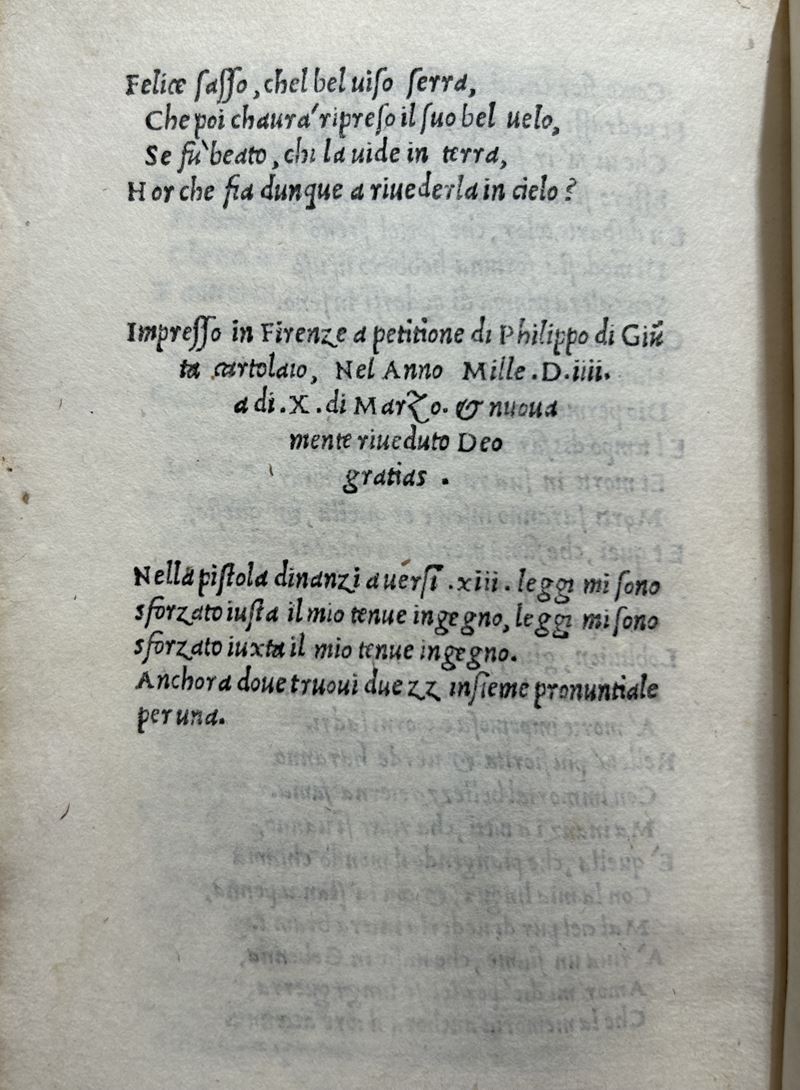 Felice sasso, chel bel uiso serra,
Che poi chaura' ripreso il suo bel uelo,
Se fu' beato, chi la uide in terra,
Hor che fia dunque a riuederla in cielo?
Impresso in Firenze a petitione di Philippo di Giū
ta cartolaio, Nel Anno Mille .D.iiii.
a di .X. di Marzo. & nuoua
mente riueduto Deo
gratias .
Nella pistola dinanzi a uersi .xiii. leggi mi sono
sforzato iusta il mio tenue ingegno, leggi mi sono
sforzato iuxta il mio tenue ingegno.
Anchora doue truoui due zz insieme pronuntiale
per una.